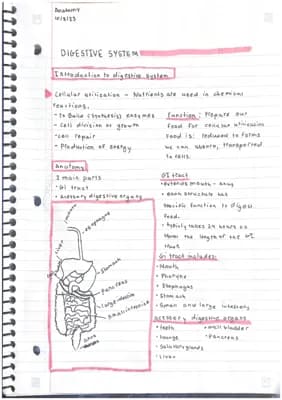 Anatomy
DIGESTIVE SYSTEM
Introduction to digestive system
Cellular utilization - Nutrients are used in chemical
reactions.
- to Build (synthesis) enzymes
- Cell division or growth
- cell repair
- Production of energy
Function: Prepare our
food for cellular utilization
Food is: reduced to forms
we can absorb, transported
to cells.
Anatomy
2 main parts
- GI tract
- accessory digestive organs
GI tract
- extends mouth - anus
- each structure has
specific function to digest
food.
- typically takes 24 hours to
travel the length of the GI
tract
GI tract includes:
- Mouth
- Pharynx
- Esophagus
- Stomach
- Small and large intestine
accessory digestive organs
- teeth
- Gallbladder
- tounge
- Pancreas
- Salivary glands
- Liver
esophagus
liver
stomach
Pancreas
large intestine
small intestine
anus